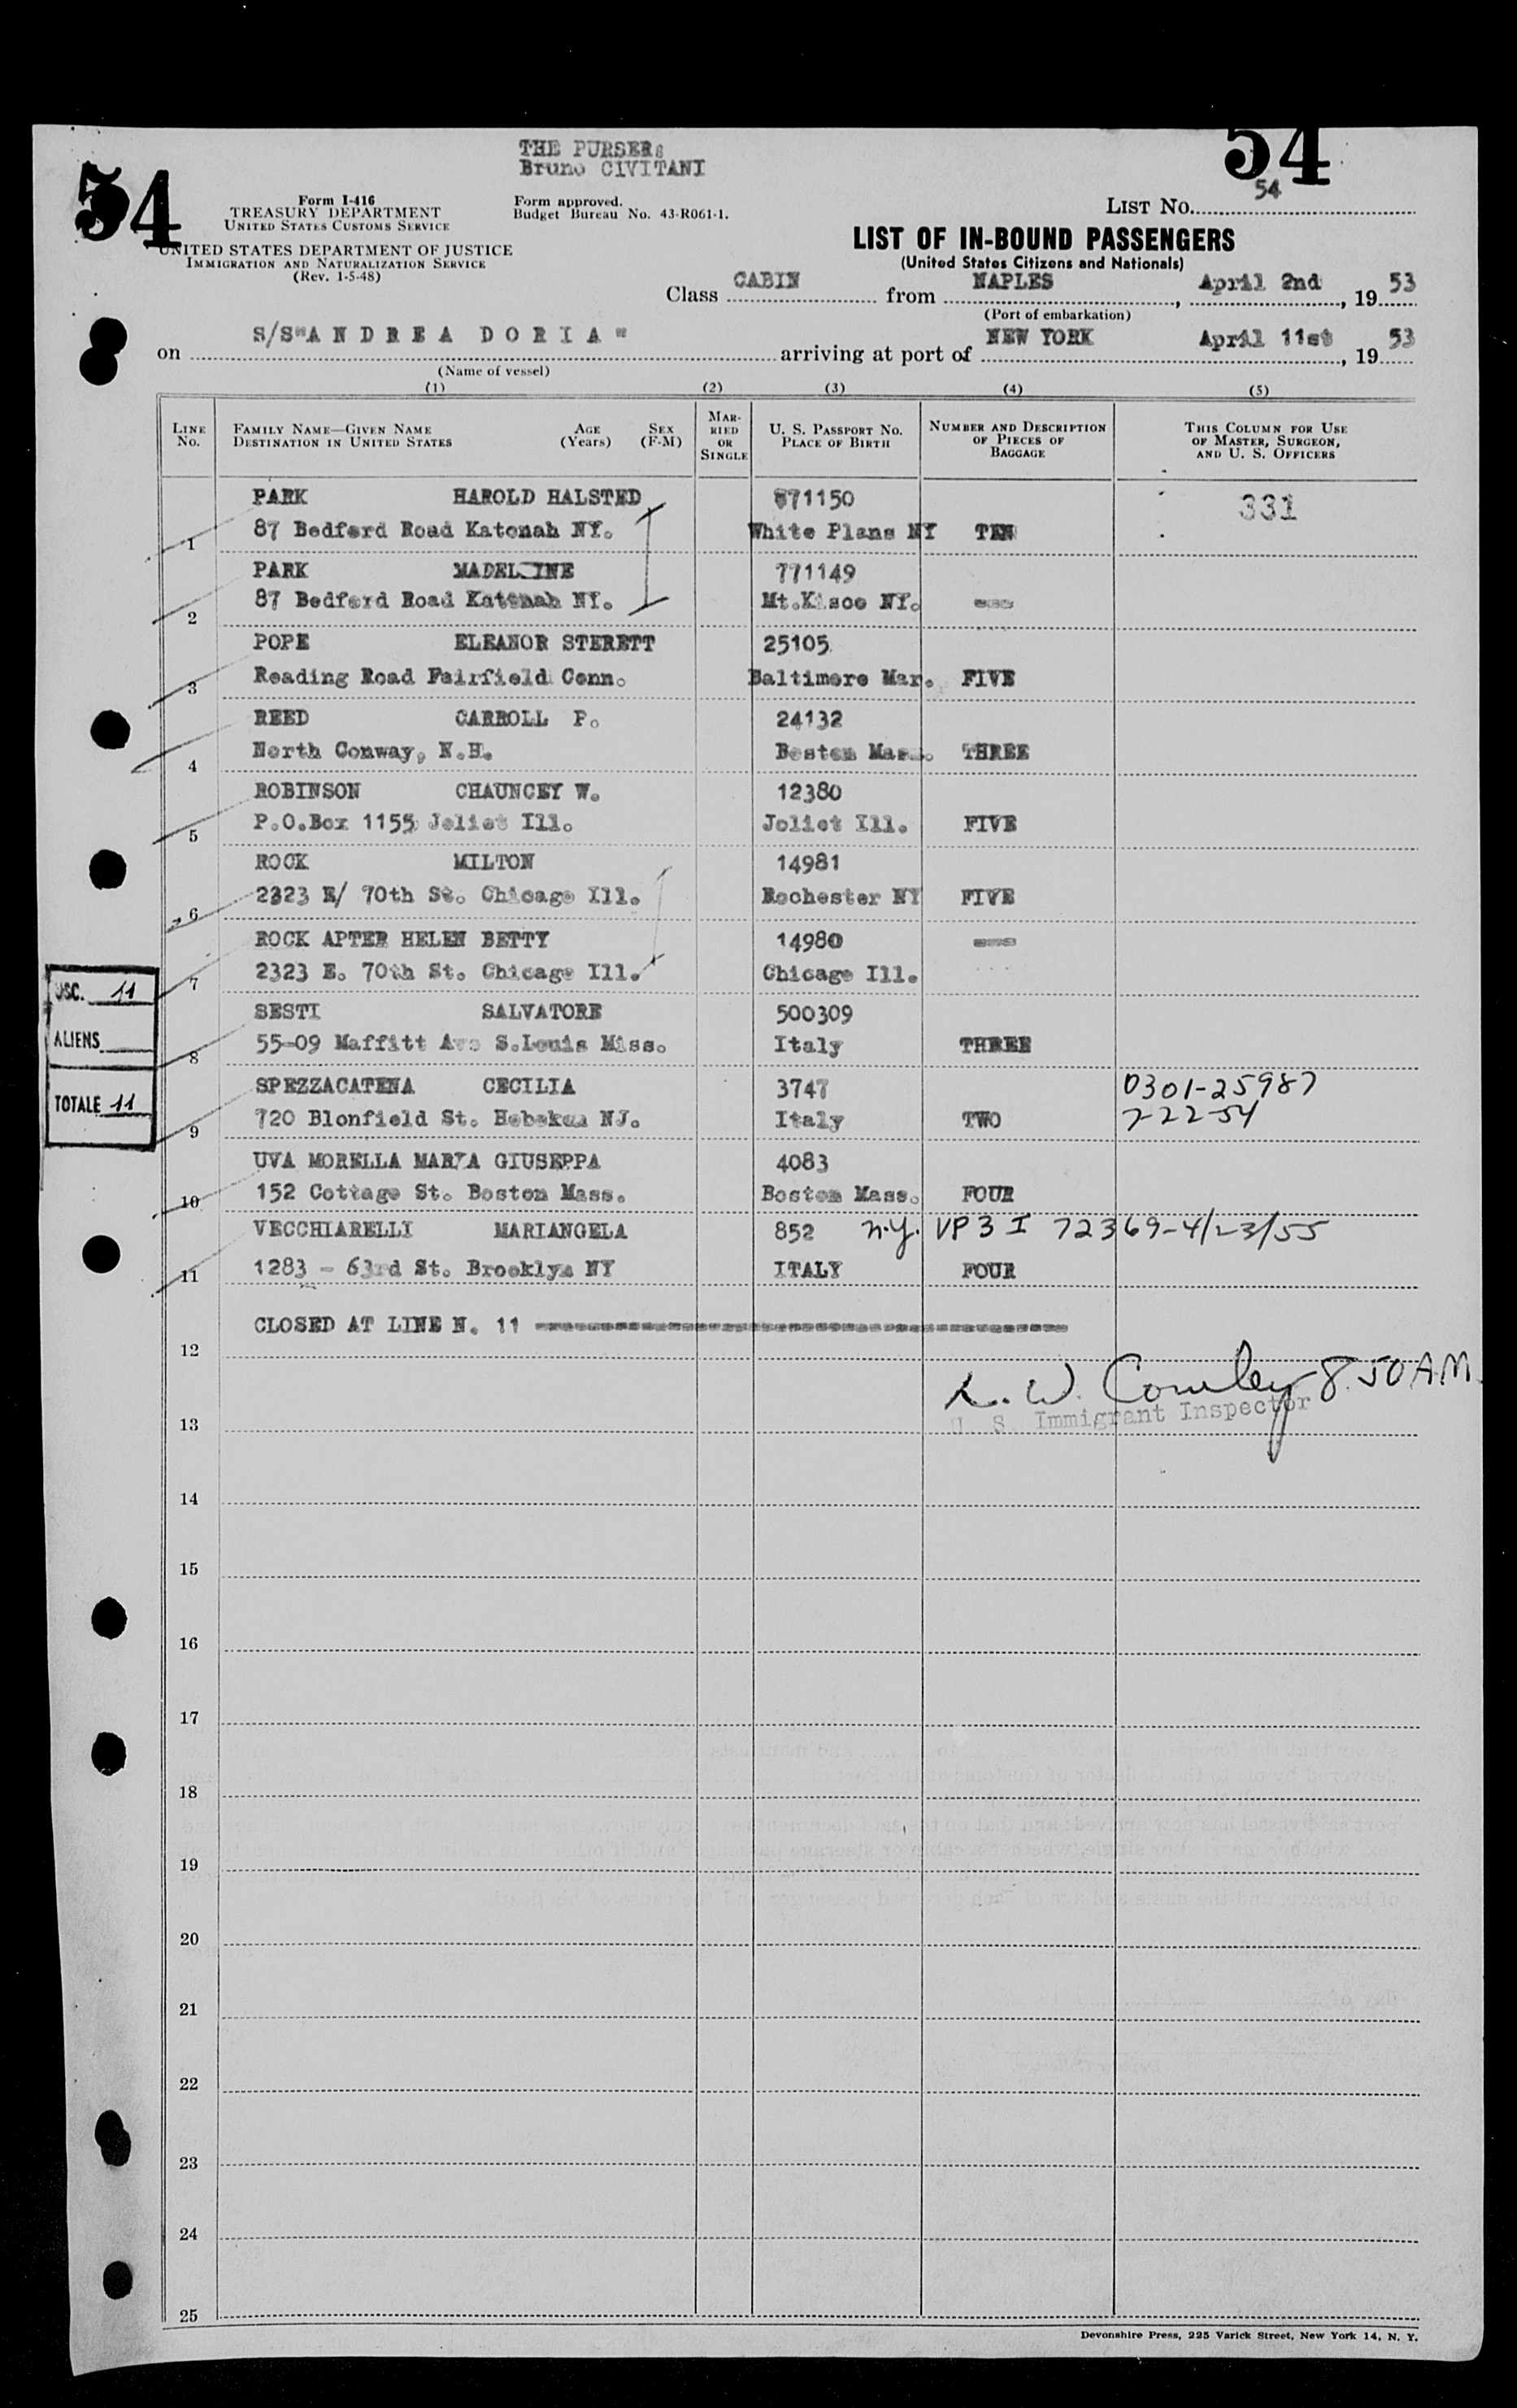 THE PURSER:
Bruno CIVITANI
54
54
Form I-416
TREASURY DEPARTMENT
UNITED STATES CUSTOMS SERVICE
UNITED STATES DEPARTMENT OF JUSTICE
IMMIGRATION AND NATURALIZATION SERVICE
(Rev. 1-5-48)
Form approved.
Budget Bureau No. 43-R061-1.
LIST No. 54
LIST OF IN-BOUND PASSENGERS
(United States Citizens and Nationals)
Class CABIN from NAPLES, April 2nd, 19 53
(Port of embarkation)
on S/S"A N D R E A D O R I A" arriving at port of NEW YORK April 11st, 19 53
(Name of vessel)
(1) (2) (3) (4) (5)
LINE No. FAMILY NAME—GIVEN NAME DESTINATION IN UNITED STATES AGE (Years) SEX (F-M) MARRIED OR SINGLE U. S. PASSPORT NO. PLACE OF BIRTH NUMBER AND DESCRIPTION OF PIECES OF BAGGAGE THIS COLUMN FOR USE OF MASTER, SURGEON, AND U. S. OFFICERS
PARK HAROLD HALSTED 871150 331
1 87 Bedford Road Katonah NY. White Plans NY TEN
PARK MADELINE 771149
2 87 Bedford Road Katonah NY. Mt.Kisco NY. ---
POPE ELEANOR STERETT 25105
3 Reading Road Fairfield Conn. Baltimore Mar. FIVE
REED CARROLL P. 24132
4 North Conway, N.H. Boston Mass. THREE
ROBINSON CHAUNCEY W. 12380
5 P.O.Box 1155 Joliet Ill. Joliet Ill. FIVE
ROCK MILTON 14981
6 2323 E/ 70th St. Chicago Ill. Rochester NY FIVE
ROCK APTER HELEN BETTY 14980 ---
7 2323 E. 70th St. Chicago Ill. Chicago Ill.
SESTI SALVATORE 500309
8 55-09 Maffitt Ave S.Louis Miss. Italy THREE
SPEZZACATENA CECILIA 3747 0301-25987
9 720 Blonfield St. Hoboken NJ. Italy TWO 7-22-54
UVA MORELLA MARIA GIUSEPPA 4083
10 152 Cottage St. Boston Mass. Boston Mass. FOUR
VECCHIARELLI MARIANGELA 852 n.y. VP 3 I 72369-4/23/55
11 1283 - 63rd St. Brooklyn NY ITALY FOUR
USC. 11
ALIENS
TOTALE 11
CLOSED AT LINE N. 11
12
L. W. Conley 8.50 A.M.
U. S. Immigrant Inspector
13
14
15
16
17
18
19
20
21
22
23
24
25
Devonshire Press, 225 Varick Street, New York 14, N. Y.